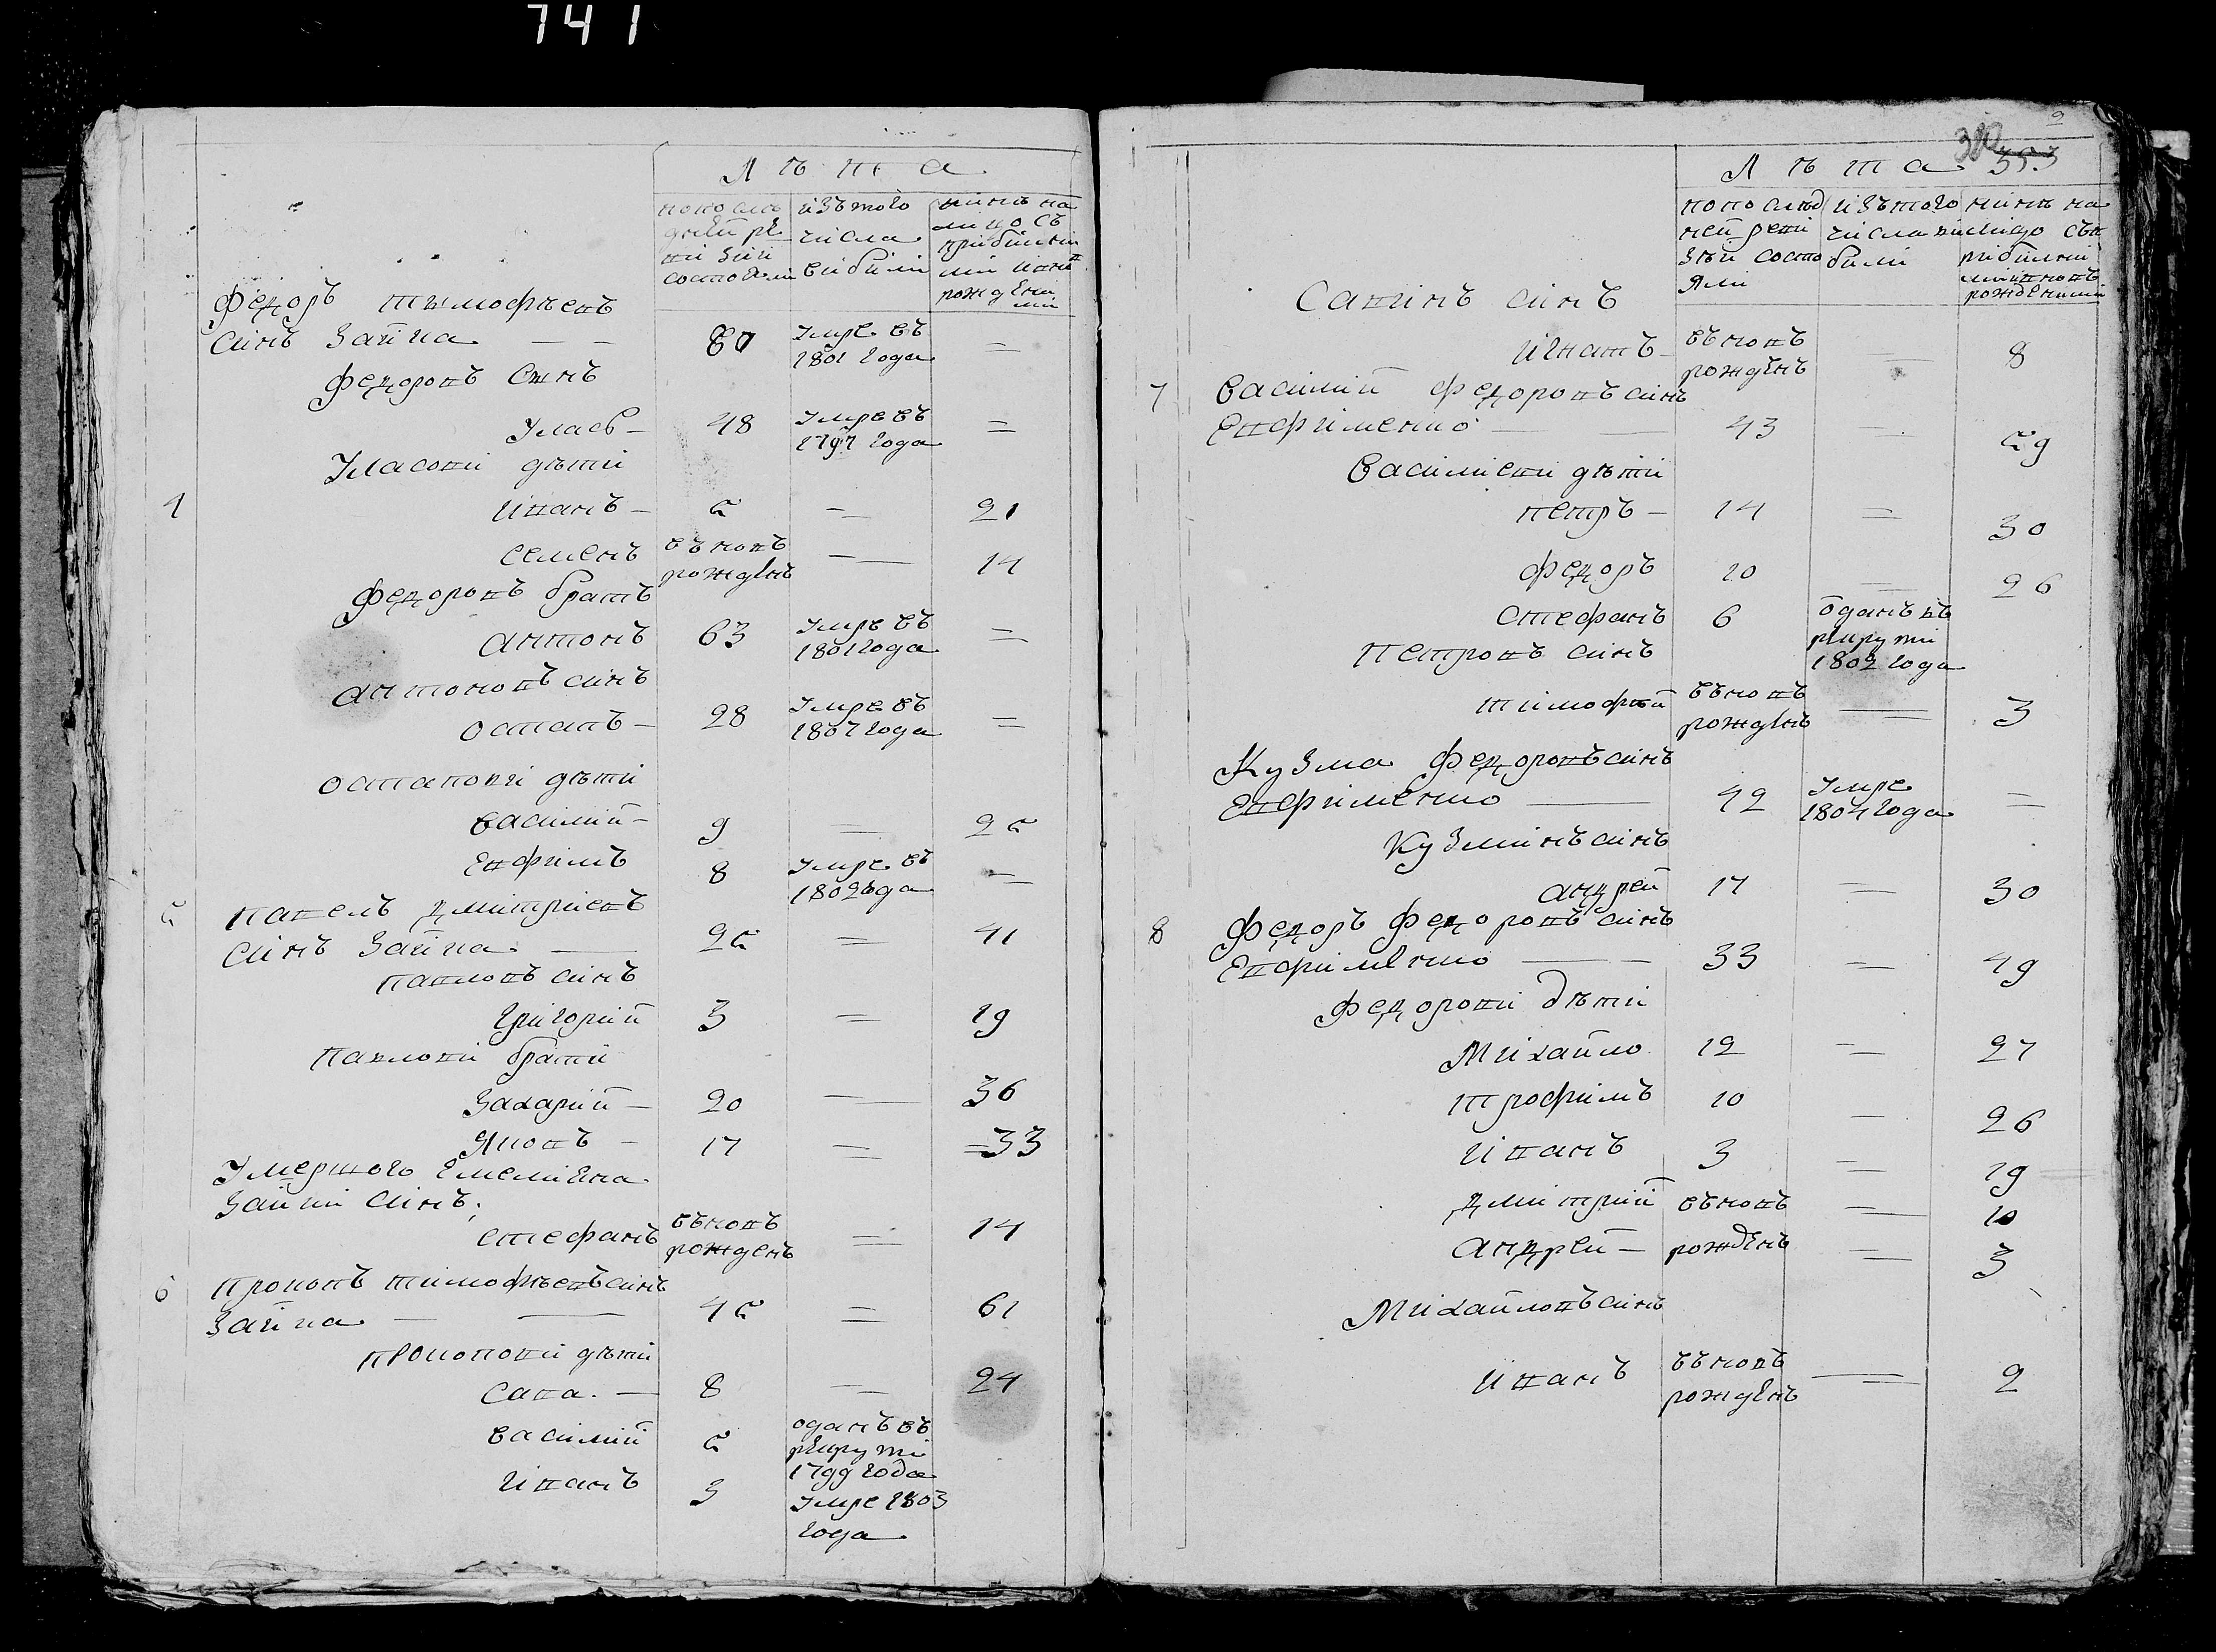 741
Лѣта
попослѣ
дней ре
ви зии
состояли
изъ того
числа
выбыли
ныне на
лицо съ
прибылы
ми и нов
рожден
ми
Федоръ тимофѣевъ
синъ Зайка — — 80 Умре въ 1801 года =
Федоровъ синъ
Уласъ — 48 Умре въ 1797 года =
Уласови дѣти
4 иванъ — 5 = 21
семенъ въновь рожденъ — 14
Федоровъ братъ
антонъ 63 Умре въ 1801 года =
антоновъ синъ
остапъ — 28 Умре въ 1807 года =
остапови дѣти
василий — 9 = 25
Евфимъ 8 Умре въ 1802 года =
5 павелъ дмитриевъ
синъ Зайка — 25 = 41
павловъ синъ
григорий 3 = 19
павлови брати
Захарий — 20 — 36
Яковъ — 17 = =33
Умершого Емелияна
Зайки синъ.
стефанъ въновь рожденъ = 14
6 прокопъ тимофѣевъ синъ
Зайка — — 45 = 61
прокопови дѣти
сава. — 8 = 24
василий 5 оданъ въ рекрути 1799 года
иванъ 3 Умре 1803 года
2
380 353
Лѣта
попослѣд
ней реви
зии состо
яли
изъ того
числа ви
били
нине на
лицо съп
рибылы
ми и новъ
рожденими
Савинъ синъ
игнатъ — въновь рожденъ — 8
7 василий Федоровъ синъ
Евфименко — 43 = 59
василиеви дѣти
петръ — 14 = 30
федоръ 10 = 26
стефанъ 6 оданъ въ рекрути 1802 года
петровъ синъ
тимофѣй въновь рожденъ = 3
Кузма Федоровъ синъ
Евфименко — 42 Умре 1804 года =
Кузминъ синъ
андрей 14 = 30
8 Федоръ Федоровъ синъ
Евфименко — 33 = 49
Федорови дѣти
Михайло 12 = 27
трофимъ 10 — 26
иванъ 3 = 19
дмитрий въновь = 10
андрей — рожденъ = 3
Михайловъ синъ
иванъ въновь рожденъ = 2